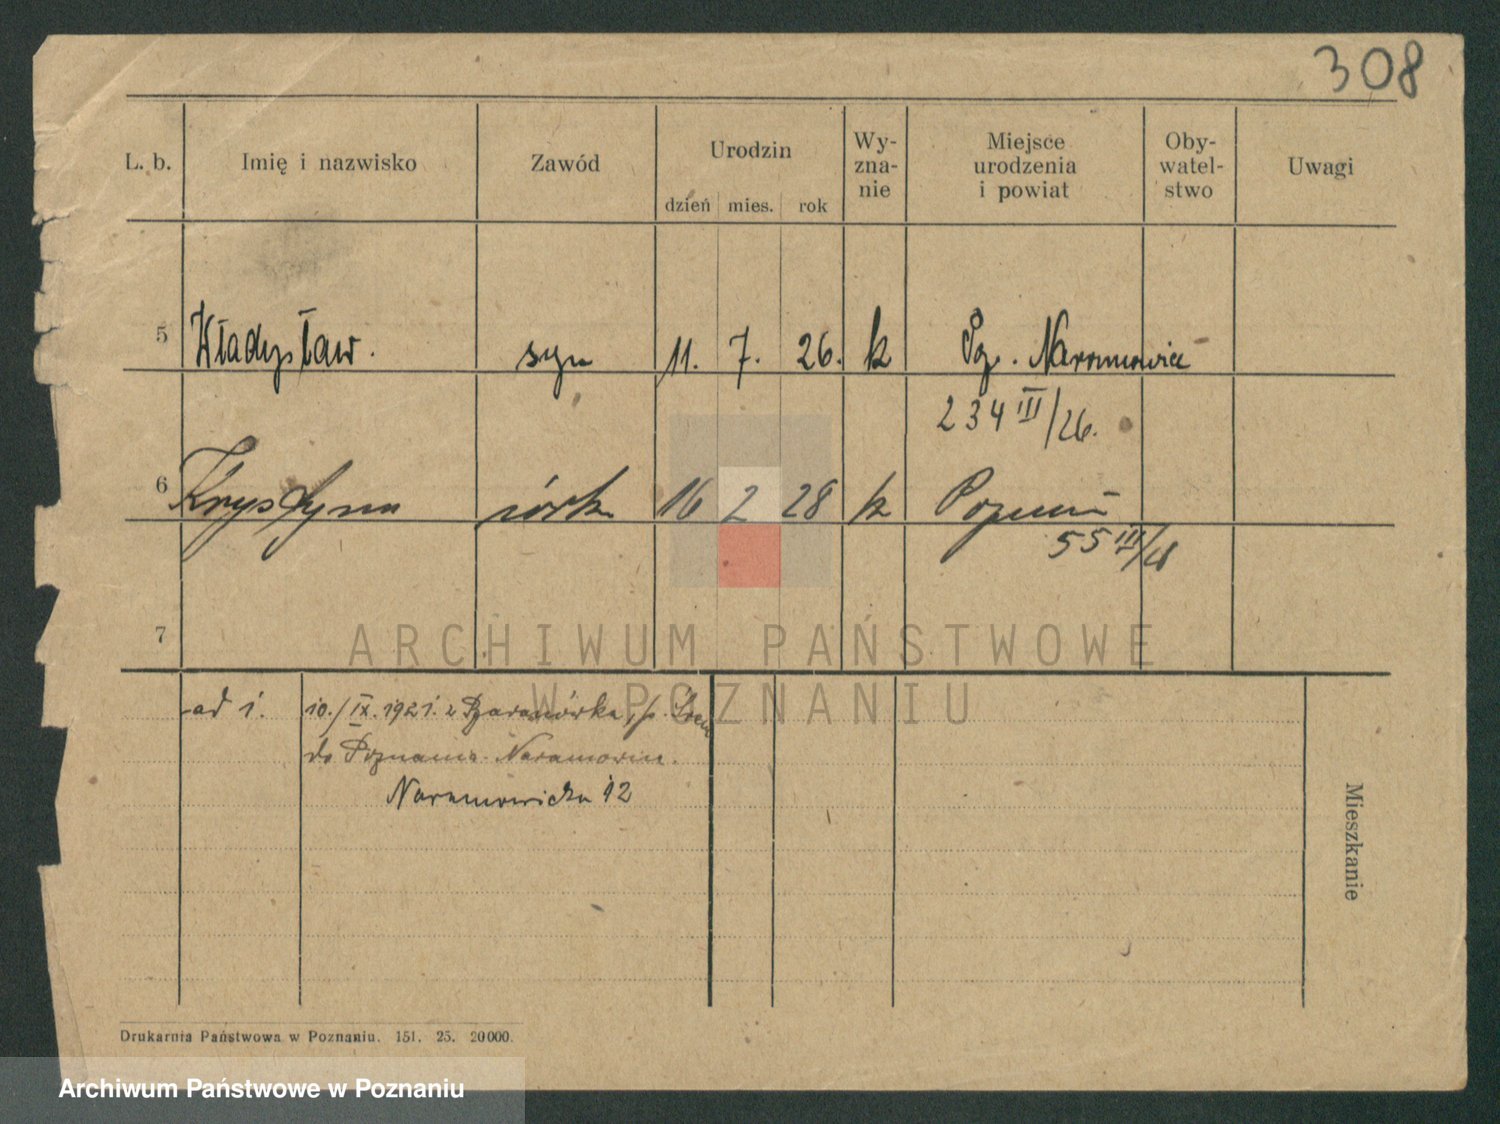 308
L. b. Imię i nazwisko Zawód Urodzin dzień mies. rok Wy- zna- nie Miejsce urodzenia i powiat Oby- watel- stwo Uwagi
5 Władysław. syn 11. 7. 26. k Pozn. Naramowice
234 III/26.
6 Krystyna córk 16 2 28 k Poznań
55 III/28
7
ARCHIWUM PAŃSTWOWE
W POZNANIU
ad 1. 10./IX. 1921. z p. Śrem
do Poznania-Naramowic.
Naramowicka 12
Mieszkanie
Drukarnia Państwowa w Poznaniu. 151. 25. 20000.
Archiwum Państwowe w Poznaniu